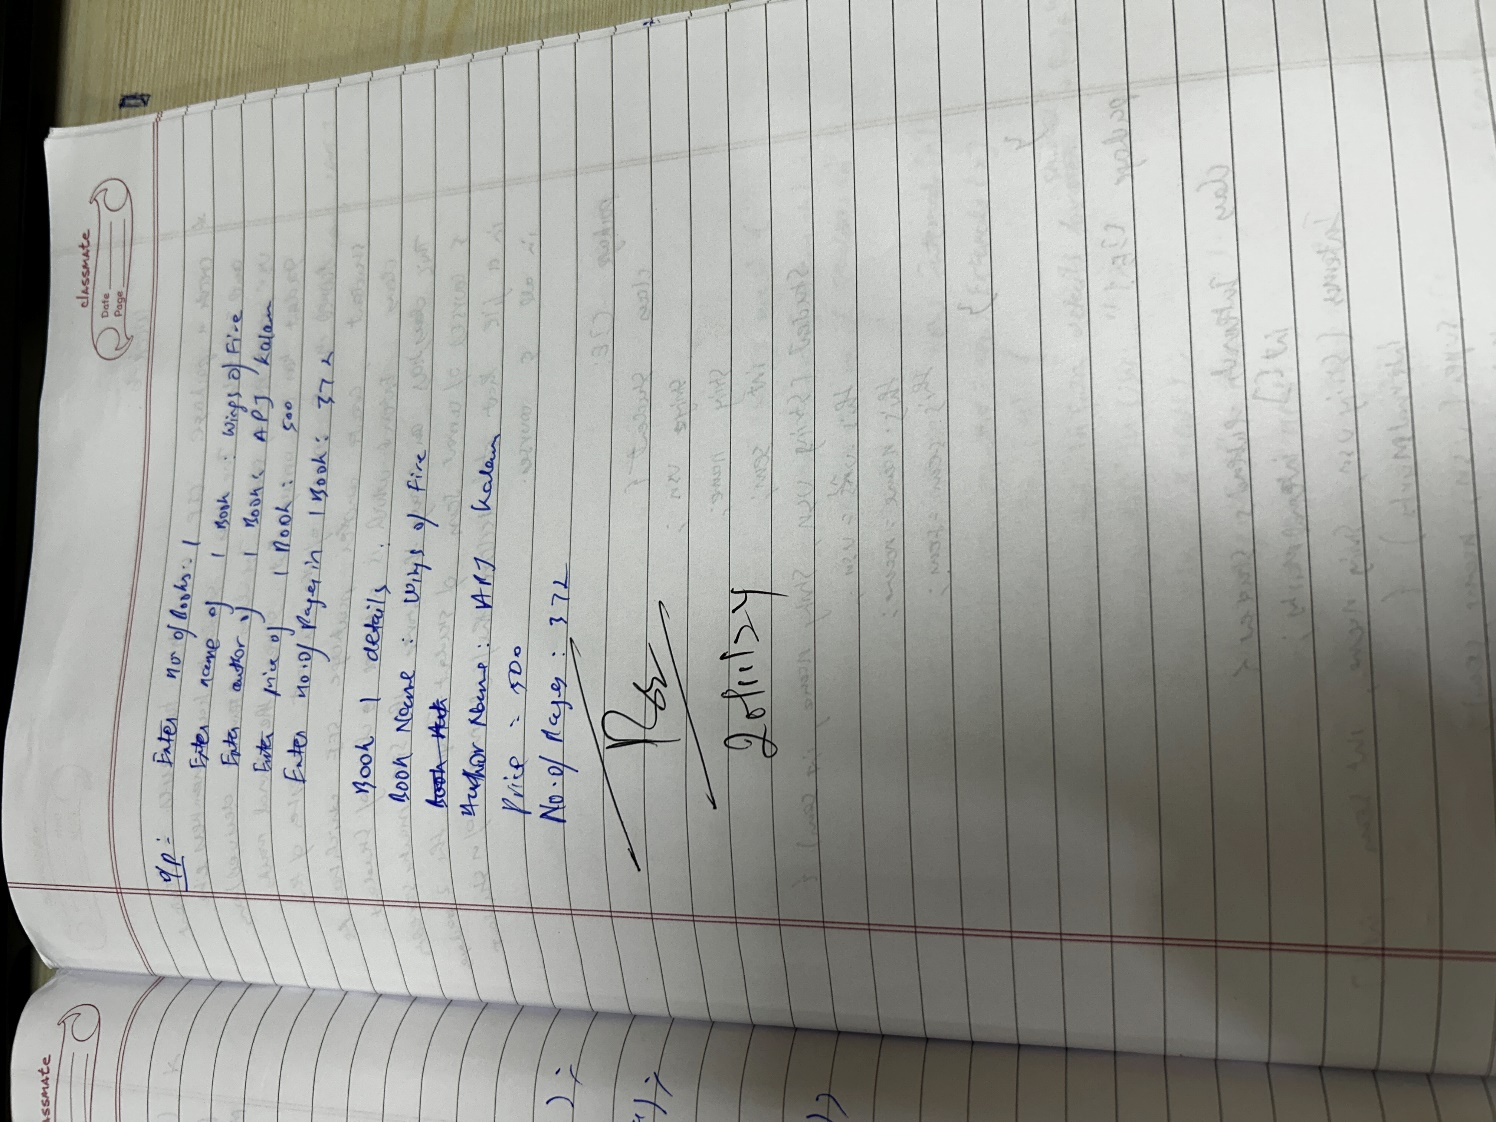 classmate
Date
Page
o/p:
Enter no. of Books: 1
Enter name of 1 Book : Wings of Fire
Enter author of 1 Book : APJ Kalam
Enter price of 1 Book : 500
Enter no. of Pages in 1 Book : 372
Book 1 details :
Book Name : Wings of Fire
Author Name : APJ Kalam
Price = 500
No. of Pages : 372
20/11/24